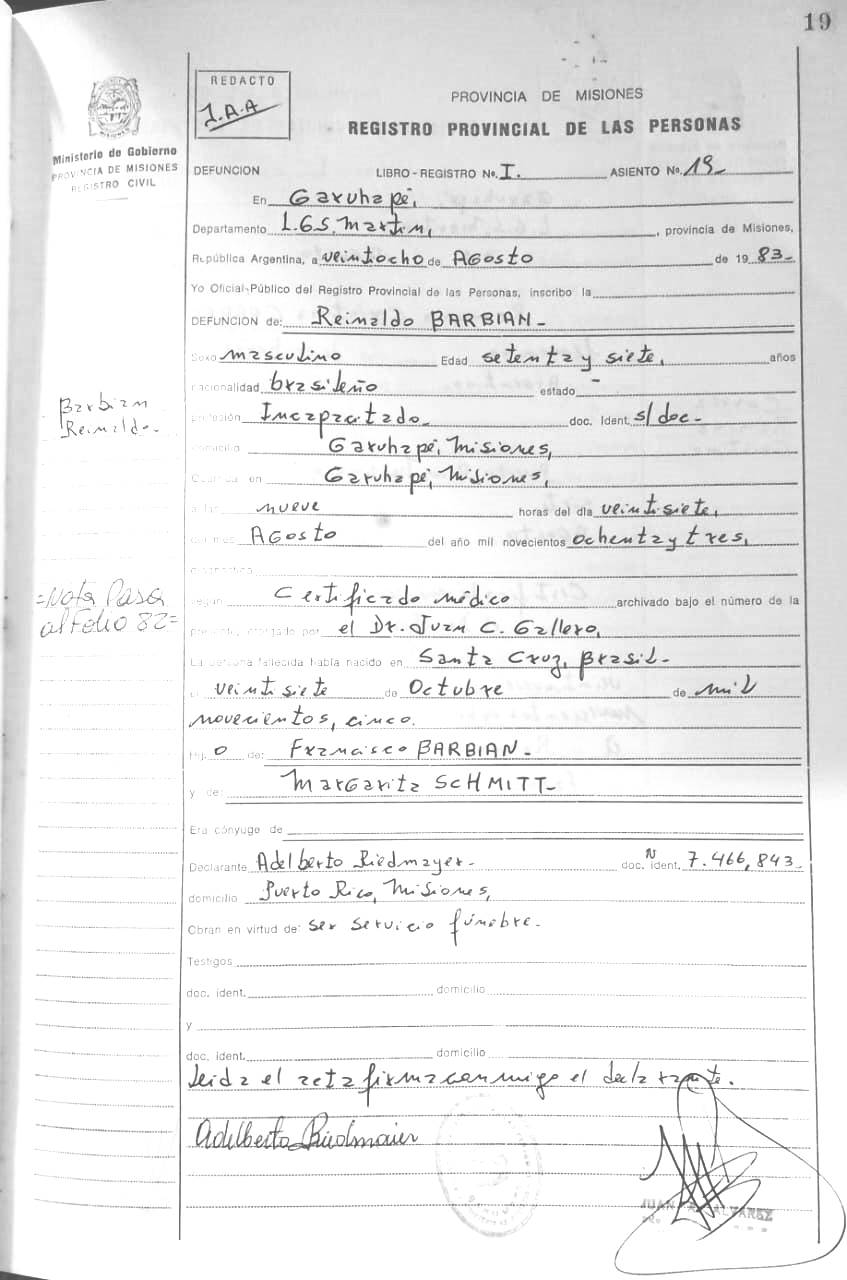 19
REDACTO
J.A.A
Ministerio de Gobierno
PROVINCIA DE MISIONES
REGISTRO CIVIL
PROVINCIA DE MISIONES
REGISTRO PROVINCIAL DE LAS PERSONAS
DEFUNCION LIBRO-REGISTRO Nº. I. ASIENTO Nº. 19_
En Garuhapé,
Departamento L.G.S. Martín, , provincia de Misiones,
República Argentina, a veintiocho de Agosto de 19 83_
Yo Oficial Público del Registro Provincial de las Personas, inscribo la
DEFUNCION de: Reinaldo BARBIAN_
Sexo masculino Edad setenta y siete, años
nacionalidad brasileño estado -
profesión Incapacitado_ doc. Ident. s/doc_
domicilio Garuhapé, Misiones,
en Garuhapé, Misiones,
a las nueve horas del día veintisiete,
del mes Agosto del año mil novecientos ochenta y tres,
Barbian
Reinaldo_
=Nota Pasa
al Folio 82=
según Certificado médico archivado bajo el número de la
presente, otorgado por el Dr. Juan C. Gallero,
La persona fallecida había nacido en Santa Cruz, Brasil_
el veintisiete de Octubre de mil
novecientos, cinco.
Hij o de: Francisco BARBIAN_
y de: Margarita SCHMITT_
Era cónyuge de
Declarante Adelberto Riedmayer_ doc. ident. N 7.466,843_
domicilio Puerto Rico, Misiones,
Obran en virtud de: ser servicio fúnebre_
Testigos
doc. ident. domicilio
y
doc. ident. domicilio
Leida el acta firma conmigo el declarante.
Adelberto Riedmaier
JUAN ALVAREZ